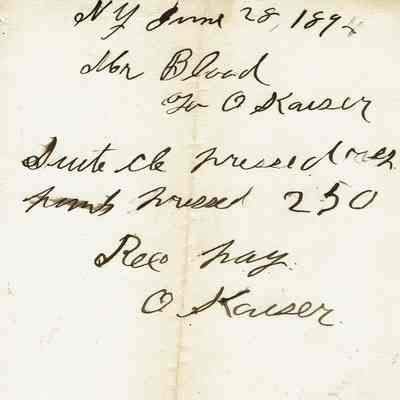 NY June 28, 1894
Mr Blood
To O Kaiser
Suite cle pressed
pressed 2 50
Rec pay.
O Kaiser.